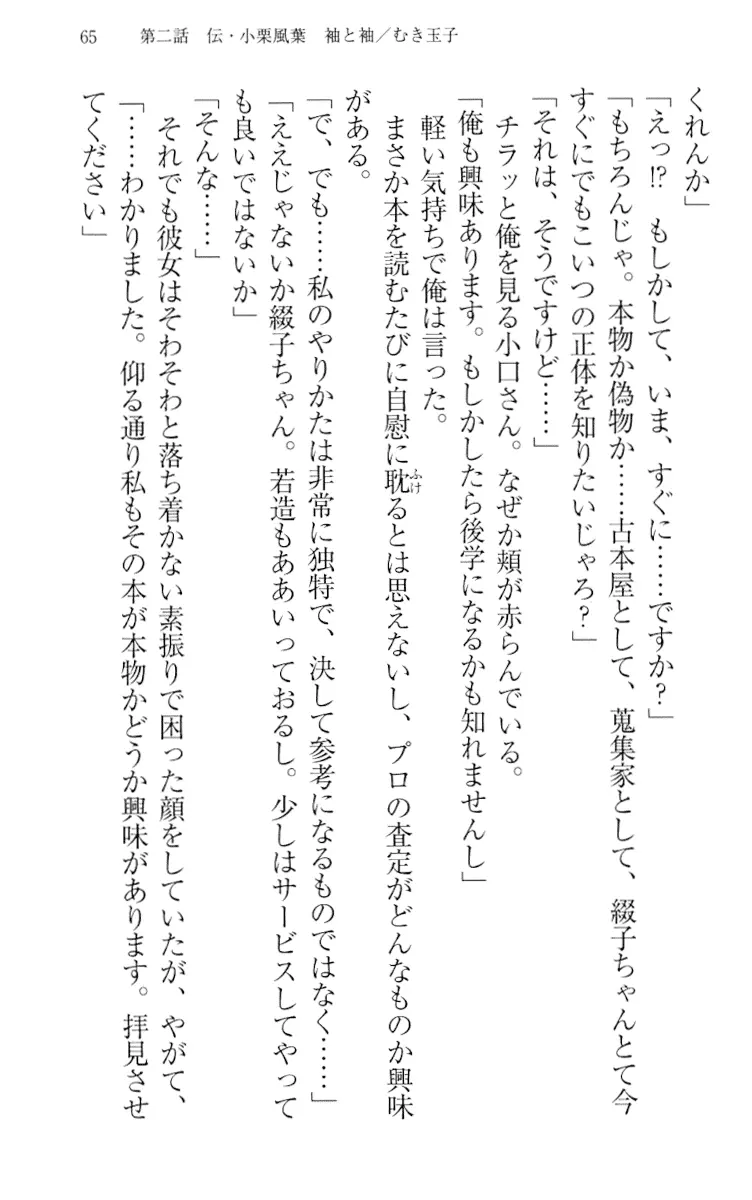 65　第二話　伝・小栗風葉　袖と袖／むき玉子
くれんか」
「えっ!?　もしかして、いま、すぐに……ですか？」
「もちろんじゃ。本物か偽物か……古本屋として、蒐集家として、綴子ちゃんとて今
すぐにでもこいつの正体を知りたいじゃろ？」
「それは、そうですけど……」
　チラッと俺を見る小口さん。なぜか頬が赤らんでいる。
「俺も興味あります。もしかしたら後学になるかも知れませんし」
　軽い気持ちで俺は言った。
　まさか本を読むたびに自慰に耽るとは思えないし、プロの査定がどんなものか興味
ふけ
がある。
「で、でも……私のやりかたは非常に独特で、決して参考になるものではなく……」
「ええじゃないか綴子ちゃん。若造もああいっておるし。少しはサービスしてやって
も良いではないか」
「そんな……」
　それでも彼女はそわそわと落ち着かない素振りで困った顔をしていたが、やがて、
「……わかりました。仰る通り私もその本が本物かどうか興味があります。拝見させ
てください」